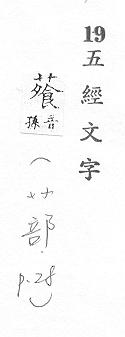 19 五經文字
蕵 音孫
(艹部. p.28)